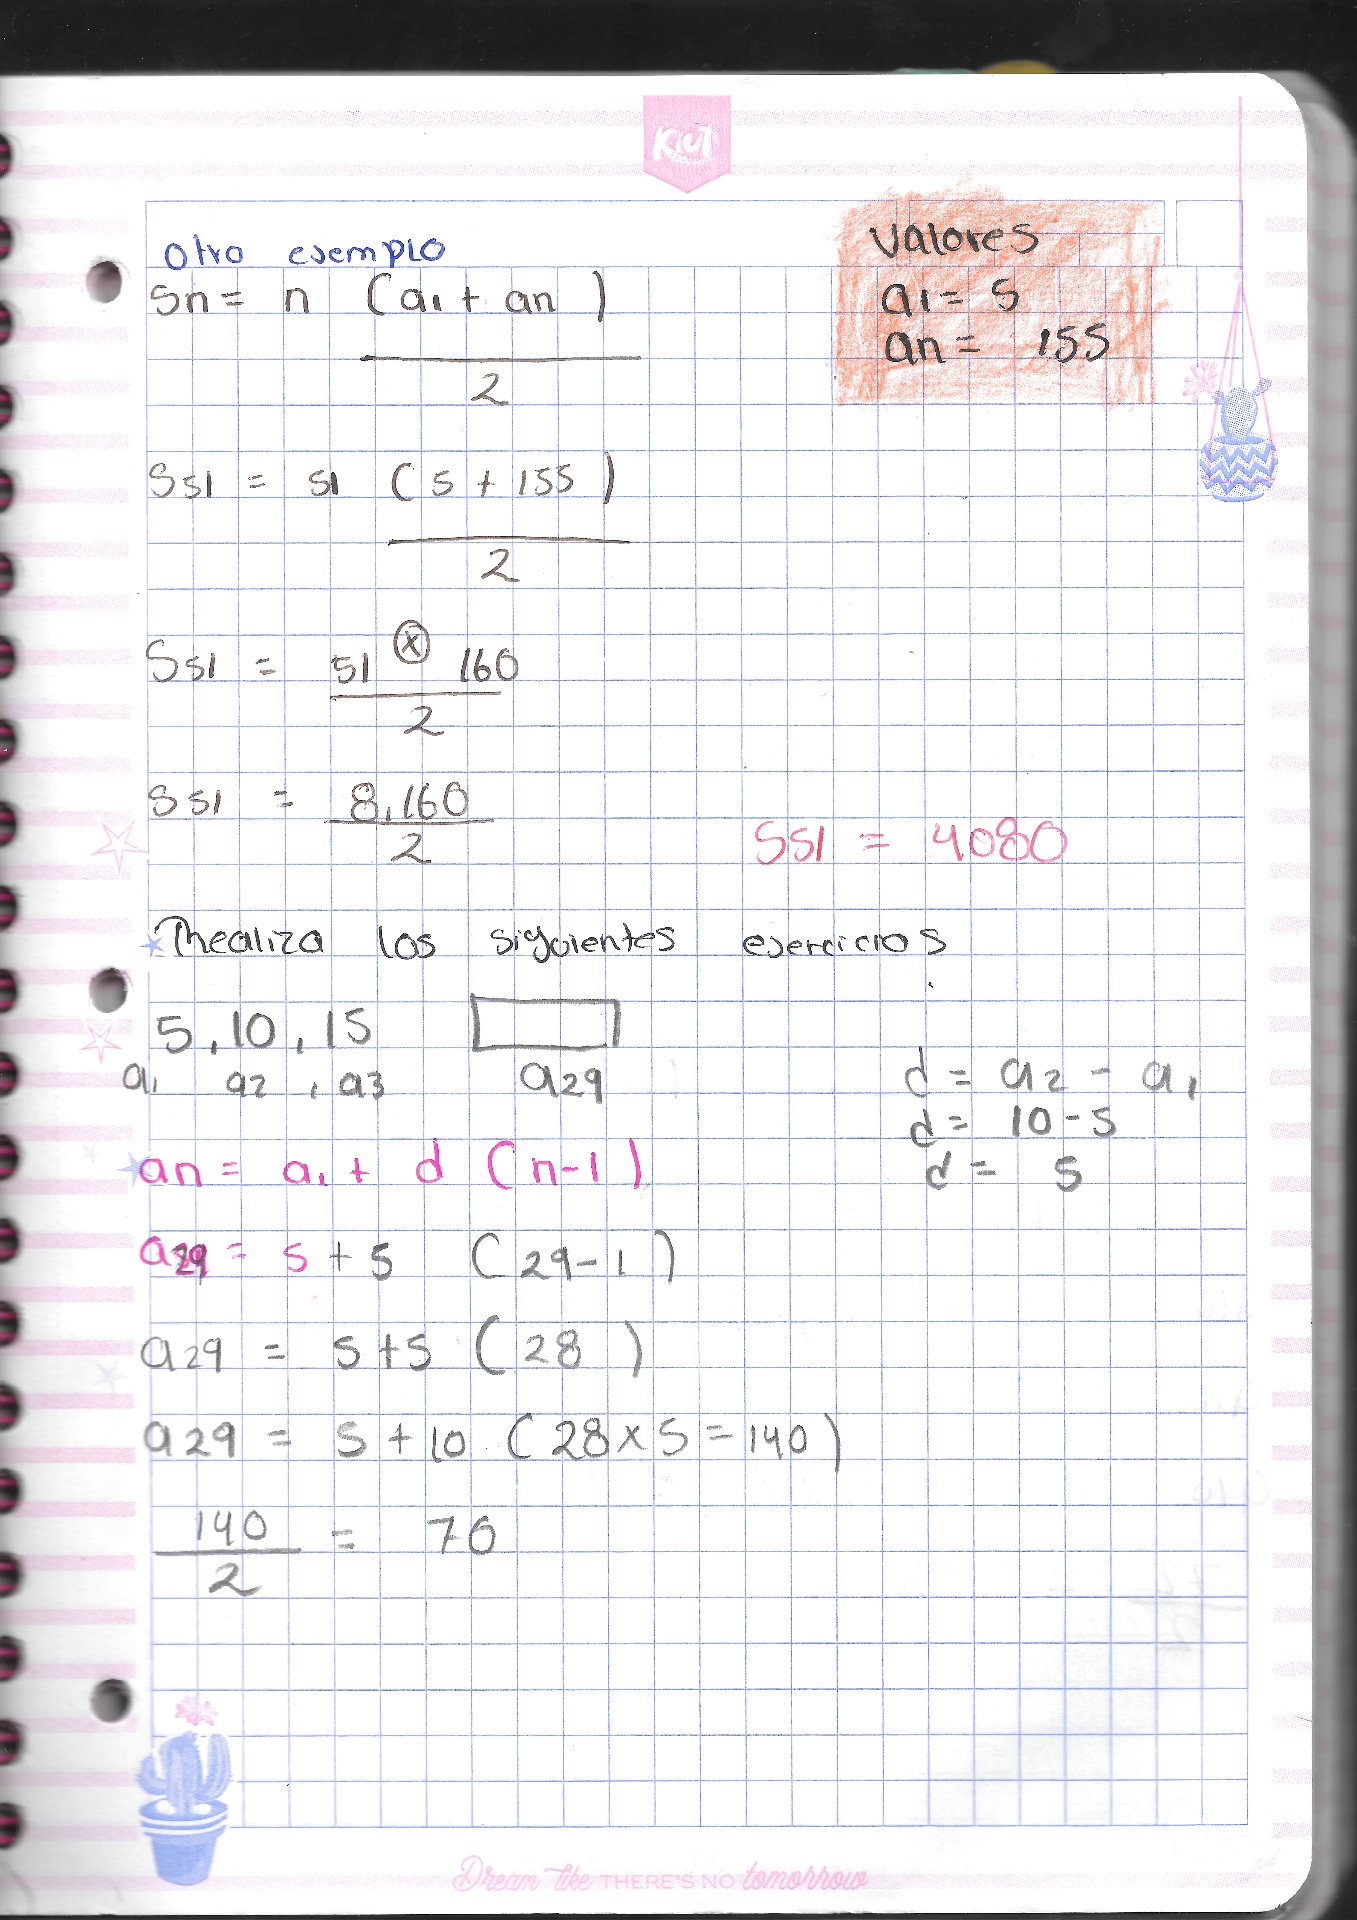 Kiut
Otro ejemplo
Sn = n (a1 + an)
2
Valores
a1 = 5
an = 155
S51 = 51 (5 + 155)
2
S51 = 51 ⊗ 160
2
S51 = 8,160
2
S51 = 4080
Realiza los siguientes ejercicios
5, 10, 15
a1 a2 , a3 a29
d = a2 - a1
d = 10 - 5
d = 5
an = a1 + d (n-1)
a29 = 5 + 5 (29-1)
a29 = 5+5 (28)
a29 = 5 + 10 (28x5=140)
140 = 70
2
Dream like THERE'S NO tomorrow